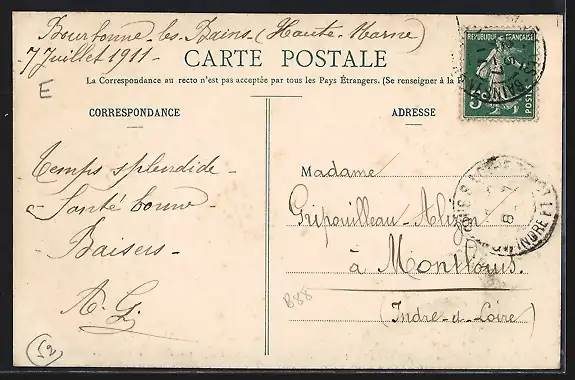 Bourbonne-les-Bains (Haute-Marne)
7 Juillet 1911-
CARTE POSTALE
La Correspondance au recto n'est pas acceptée par tous les Pays Étrangers. (Se renseigner à la
E
CORRESPONDANCE
ADRESSE
REPUBLIQUE FRANÇAISE
5c
POSTES
Temps splendide -
- Santé bonne -
Baisers -
A. G.
Madame
Gripouilleau-
à Montlouis.
(Indre-et-Loire)
INDRE
B88
52